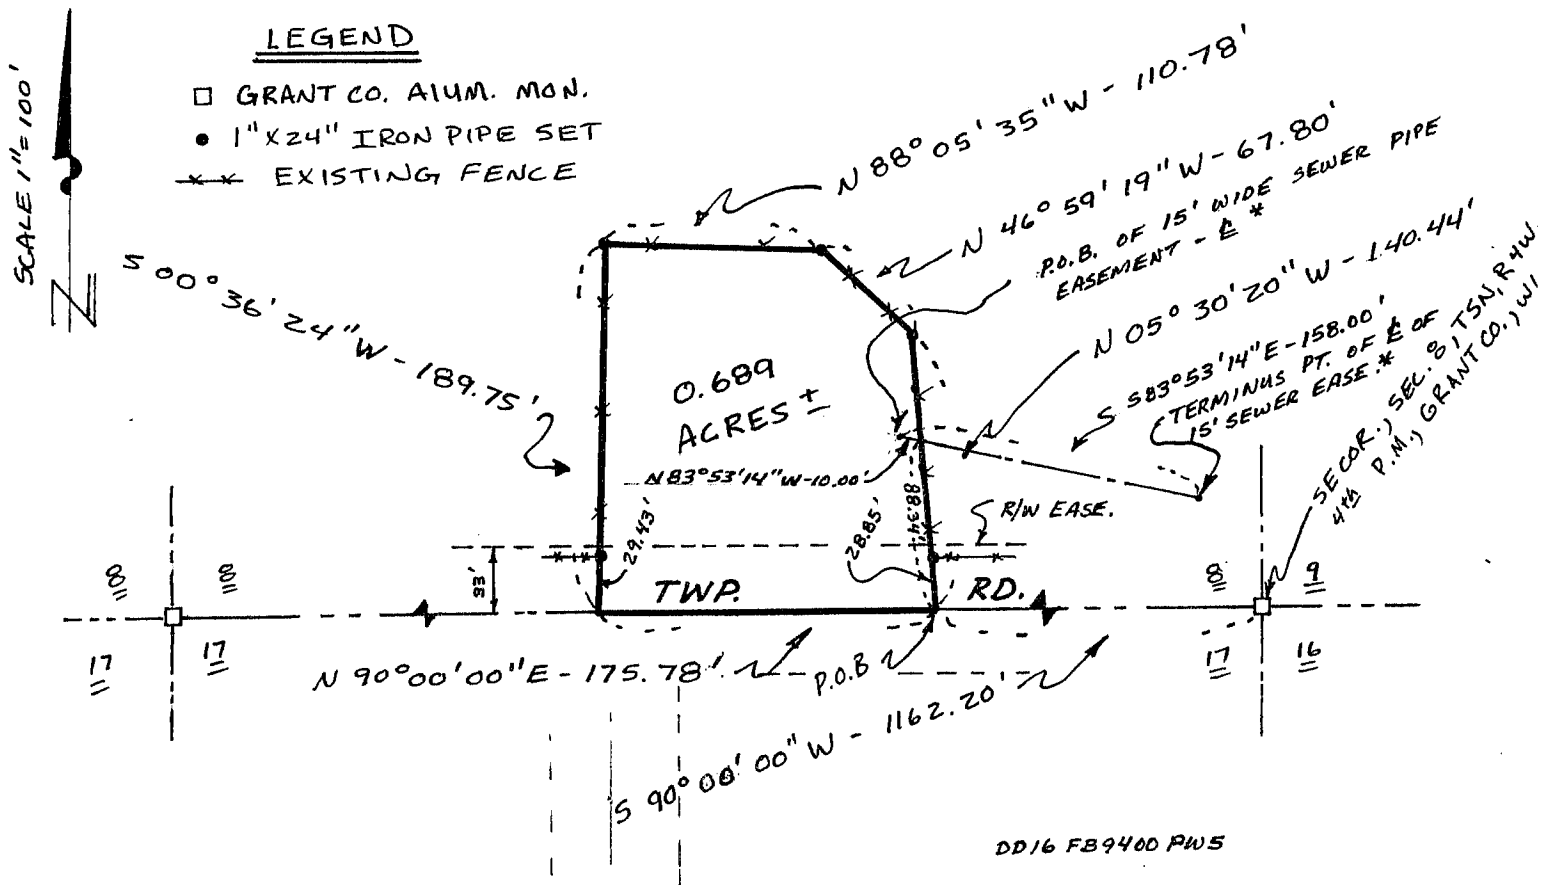 LEGEND
□ GRANT CO. ALUM. MON.
• 1"X24" IRON PIPE SET
EXISTING FENCE
SCALE 1"=100'
N
N 88° 05' 35" W - 110.78'
N 46° 59' 19" W - 67.80'
P.O.B. OF 15' WIDE SEWER PIPE
EASEMENT - ℄ *
N 05° 30' 20" W - 140.44'
S 83°53'14"E - 158.00'
TERMINUS PT. OF ℄ OF
15' SEWER EASE.*
SE COR., SEC. 8, T5N, R4W
4th P.M., GRANT CO., WI
S 00° 36' 24" W - 189.75'
0.689
ACRES ±
N 83°53'14"W-10.00'
29.43'
28.85'
88.34'
R/W EASE.
33'
TWP. RD.
8 8
17 17
8 9
17 16
N 90°00'00"E - 175.78'
P.O.B
S 90° 00' 00" W - 1162.20'
DD16 FB9400 PW5